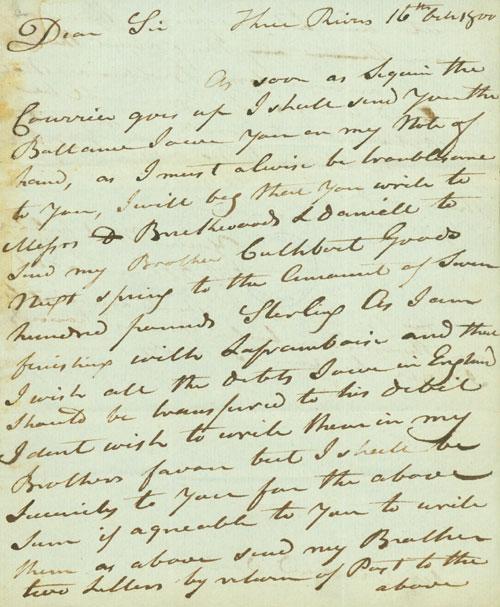 Three Rivers 16th Octr 1800
Dear Sir
As soon as Seguin the
Courrier goes up I shall send You the
Ballance I owe You on my Note of
hand, as I must alwise be troublesome
to You, I will beg that You write to
Messrs Brickwoods & Daniell to
send my Brother Cuthbert Goods
Next spring to the Amount of Seven
hundred pounds Sterling As I am
finishing with Laframboise and that
I wish all the debts I owe in England
should be transfured to his debit
I dont wish to write them in my
Brothers favour but I shall be
Security to You for the above
Sum if agreable to You to write
them as above send my Brother
two Letters by return of Post to the
above